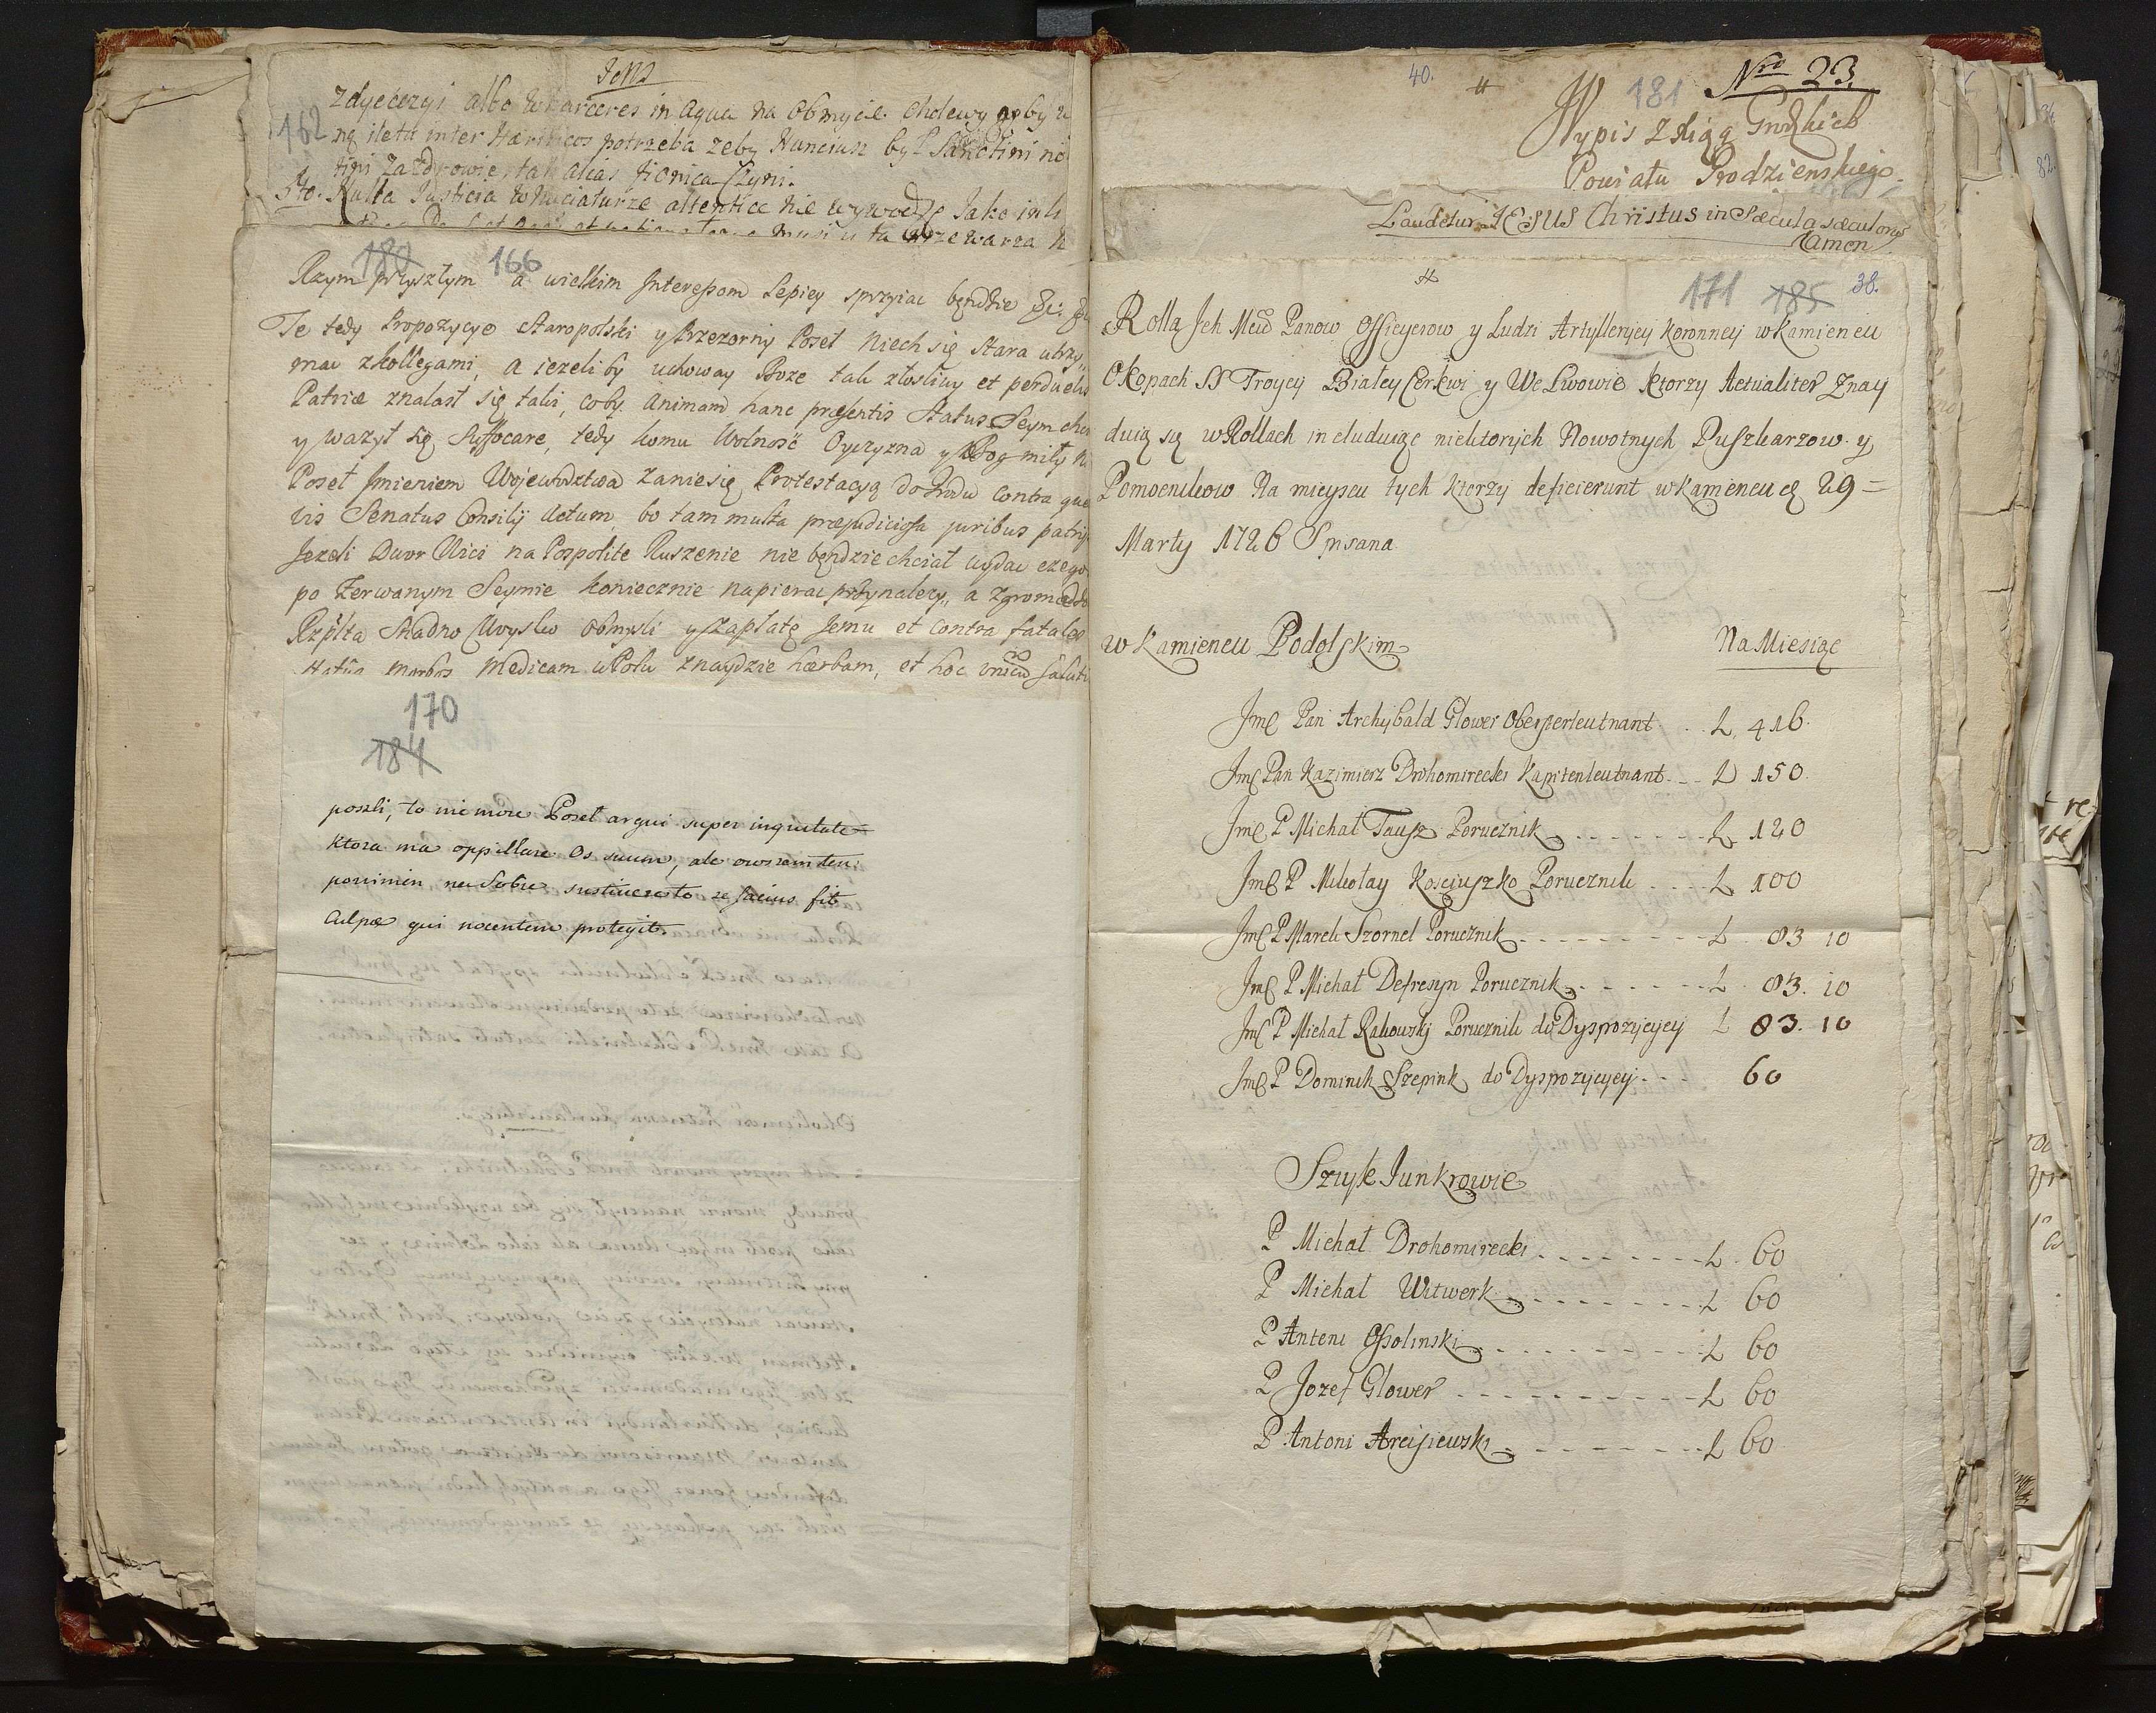 JCM
162
zdyecezyi albo w karceres in aqua na obmycie cholewy aby
ną iletu inter Hæreticos potrzeba zeby Nunciusz był Sanctini
tini Zazdrowie, tak alias
5to. Nulla Justicia w Nuciaturze attentice nie wywodzę Jako
180 166
Rzym przyszłym a wielkim Interessom Lepiey sprzyiac będzie
Te tedy Propozycye staropolski y Przezorny Poseł niech się stara utrzy„
mac z kollegami, a iezeliby uchoway Boze tak złosliwy et perduelis
Patriæ znalasł się taki, coby Animam hanc præsentis Status Seym
y wazył się Suffocare, tedy komu Wolność Oyczyzna y Bog miły
Poseł Jmieniem Wojewodztwa zaniesię Protestacyą do Grodu contra
vis Senatus Consilij Actum, bo tam multa præjudiciosa juribus
Jezeli Dwor Wici na Pospolite Ruszenie nie będzie chciał wydac czego
po Zerwanym Seymie koniecznie napierac przynalezy„ a
Rzplta Snadno Uvysku obmysli y zapłatę Jemu et contra fatales
Status morbos Medicam w Polu znaydzie hærbam, et hoc
170
184
poszli, to nie moze Poseł argui super inquitate
Ktora ma oppillare Os suum, ale owszem ten
powinien na Sobie sustinere to ze socius fit
Culpæ qui nocentem protegit.
40.
#
181
Nro 23
Wypis z Xiąg Grodzkich
Powiatu Grodzienskiego.
Laudetur JESUS Christus in Sæcula sæculorum
Amen
#
171 185 38.
Rolla Jch Mciw Panow Officyerow y Ludzi Artylleryey Koronney w Kamiencu
Okopach SS Troycy Białey Cerkwi y We Lwowie Ktorzy Actualiter Znay
duią są w Rollach includuiąc niektorych Nowotnych Puszkarzow y
Pomocnikow Na mieyscu tych Ktorzy deficierunt w Kamiencu d 29 =
Marty 1726 Spisana
w Kamiencu Podolskim
Na Miesiąc
Jmc Pan Archybald Glower Oberszterleutnant . . L 416.
Jmc Pan Kazimierz Drohomirecki Kapitenleutnant . . . L 150.
Jmc P Michał Tausz Porucznik . . . . . . . L 120
Jmc P Mikołay Kosciuszko Porucznik . . . . L 100
Jmc P Marek Szornel Porucznik . . . . . . . . L . 83 10
Jmc P Michał Defresyn Porucznik . . . . . . L . 83. 10
Jmc P Michał Rakowskj Porucznik do Dyspozycyey L 83. 10
Jmc P Dominik Szepink do Dyspozycyey . . . 60
Szyk Junkrowie
P Michał Drohomirecki . . . . . . . . L . 60
P Michał Witwerk . . . . . . . . . L 60
P Antoni Ossolinski . . . . . . . . . L 60
P Jozef Glower . . . . . . . . . . L 60
P Antoni Arcisiewski . . . . . . . . L 60